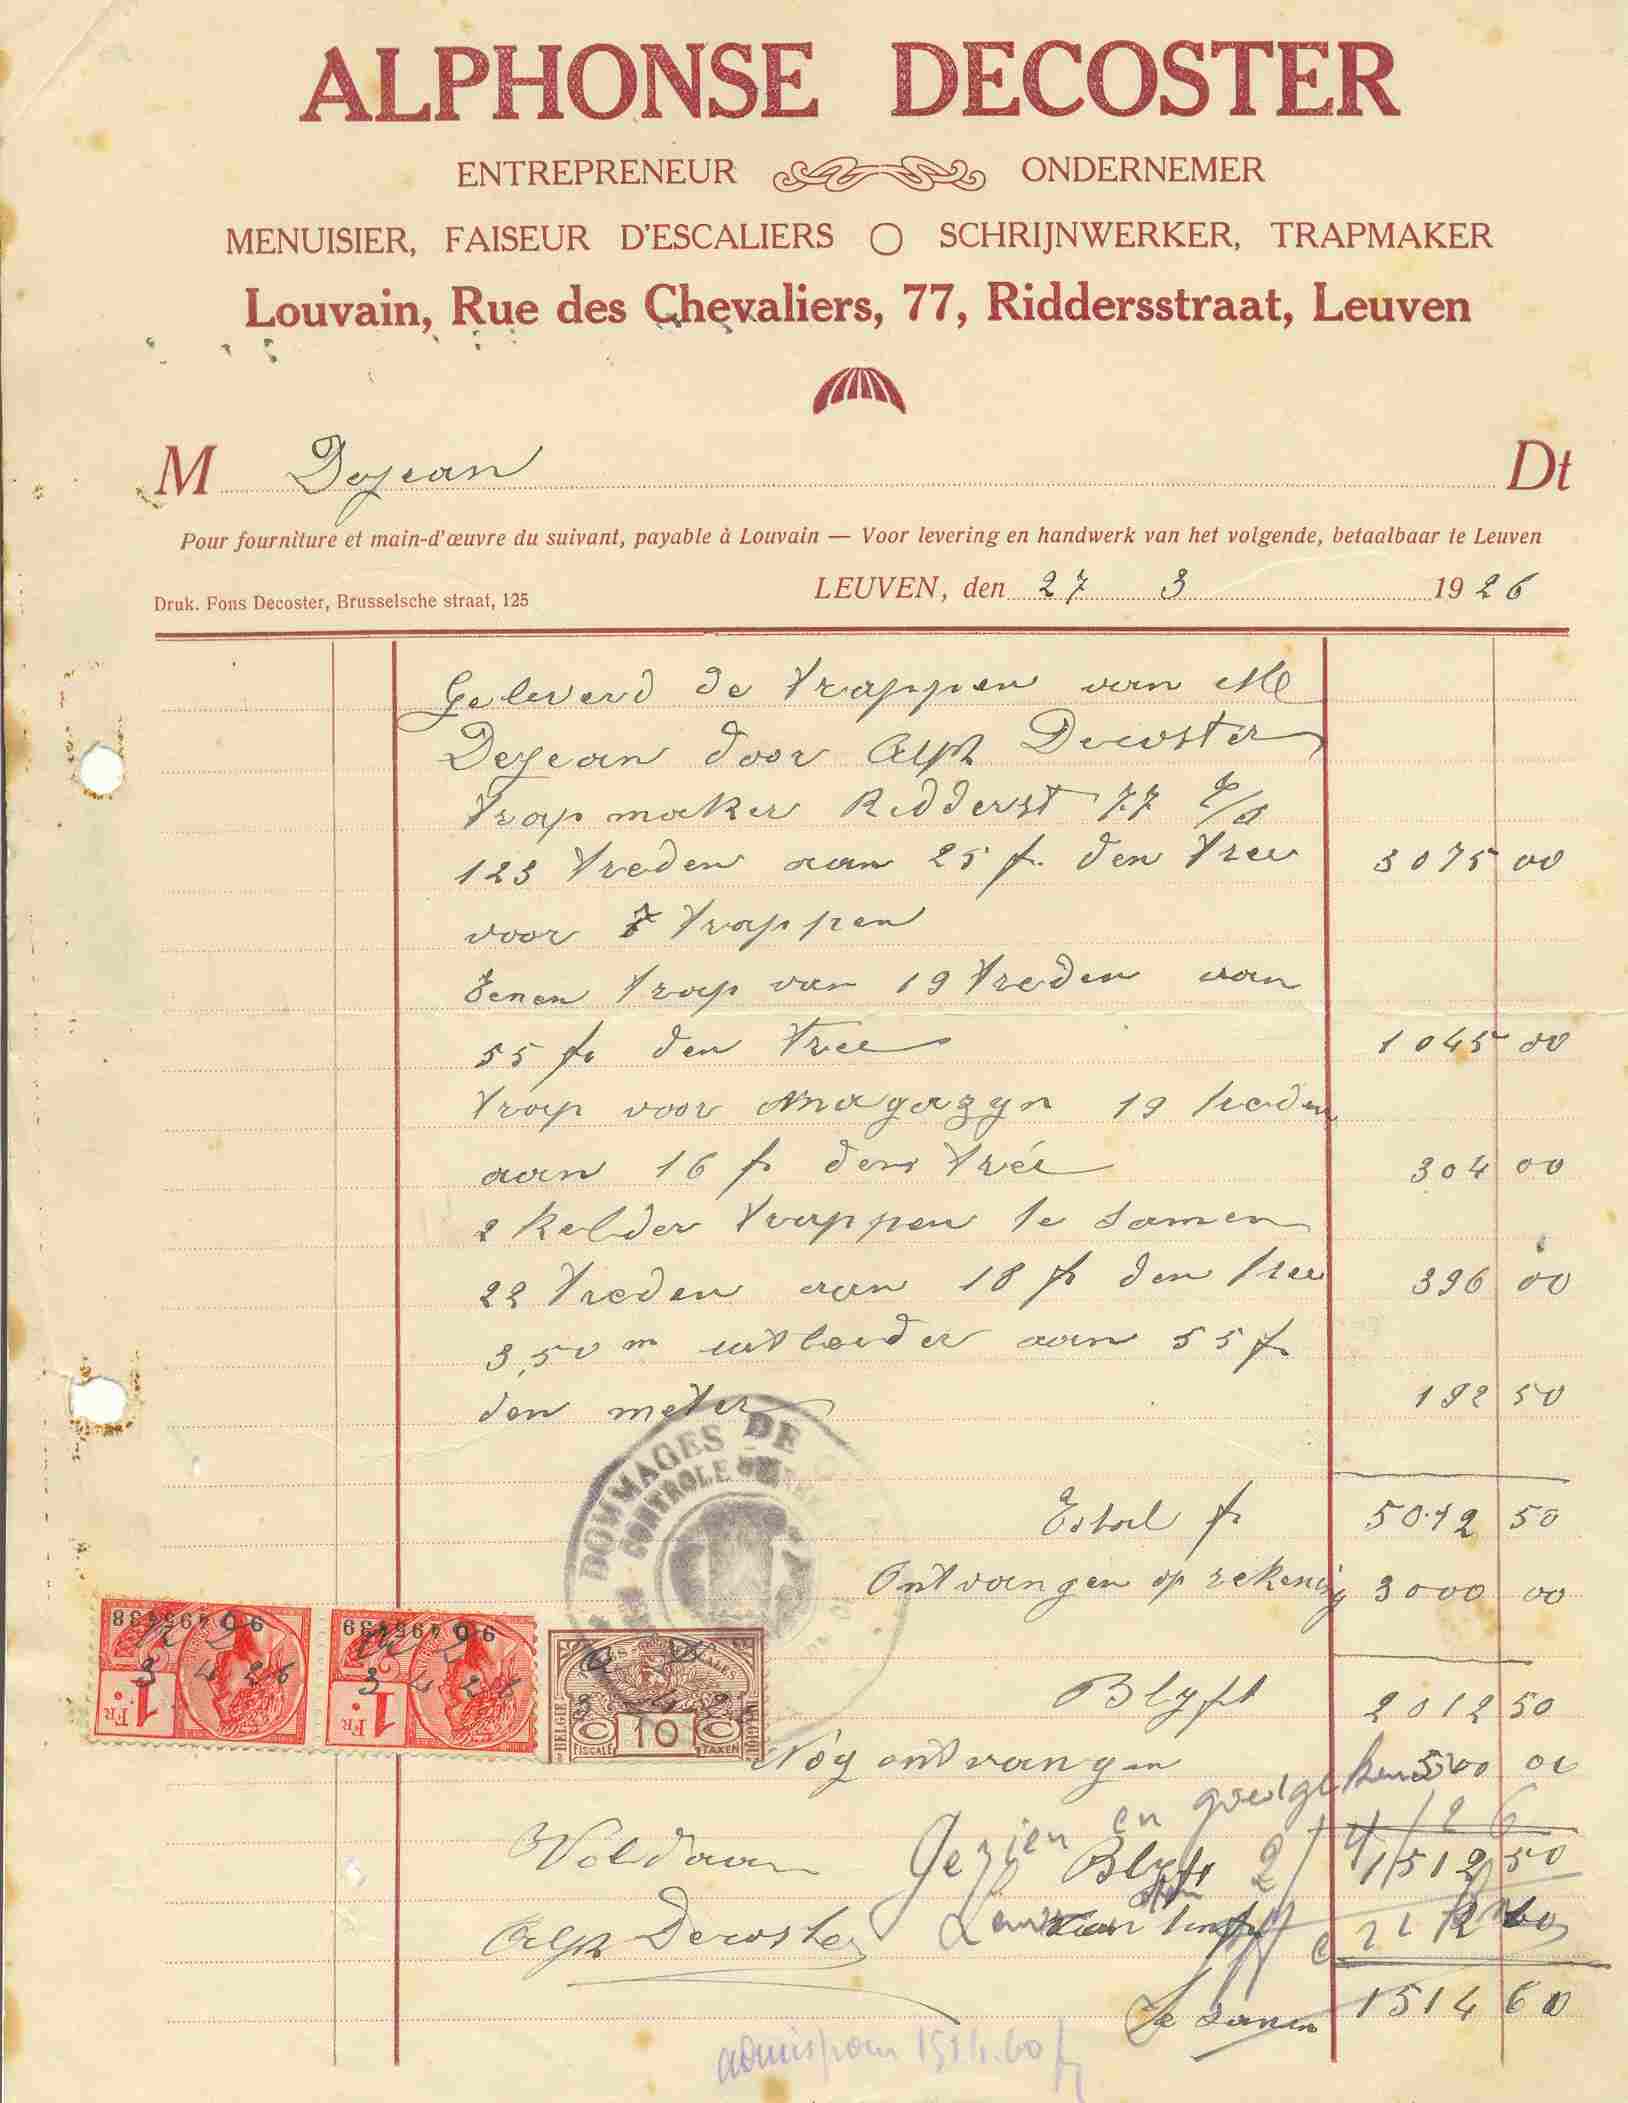 ALPHONSE DECOSTER
ENTREPRENEUR ONDERNEMER
MENUISIER, FAISEUR D'ESCALIERS SCHRIJNWERKER, TRAPMAKER
Louvain, Rue des Chevaliers, 77, Riddersstraat, Leuven
M Dejean Dt
Pour fourniture et main-d'œuvre du suivant, payable à Louvain — Voor levering en handwerk van het volgende, betaalbaar te Leuven
LEUVEN, den 27 3 1926
Druk. Fons Decoster, Brusselsche straat, 125
Geleverd de trappen van M
Dejean door Alph Decoster
trapmaker Ridderst 77
123 treden aan 25 f. den tree 3075 00
voor 7 trappen
Eenen trap van 19 treden aan
55 fr den tree 1045 00
trap voor magazyn 19 treden
aan 16 fr den trée 304 00
2 kelder trappen te samen
22 treden aan 18 fr den tree 396 00
3,50 m uitboeder aan 55 fr
den meter 192 50
DOMMAGES DE
CONTROLE
Totael fr 5012 50
Ontvangen op rekening 3000 00
9 495438
9 495439
3 4 26
3 4 26
1 FR
1 FR
BELGIE
FISCALE 10 TAXEN
Blyft 2012 50
Nóg ontvangen 500 00
Gezien en goedgekeurd
Voldaan Blyft 1512 50
Alph Decoster 2 10
Te samen 1514 60
admis pour 1514.60 fr